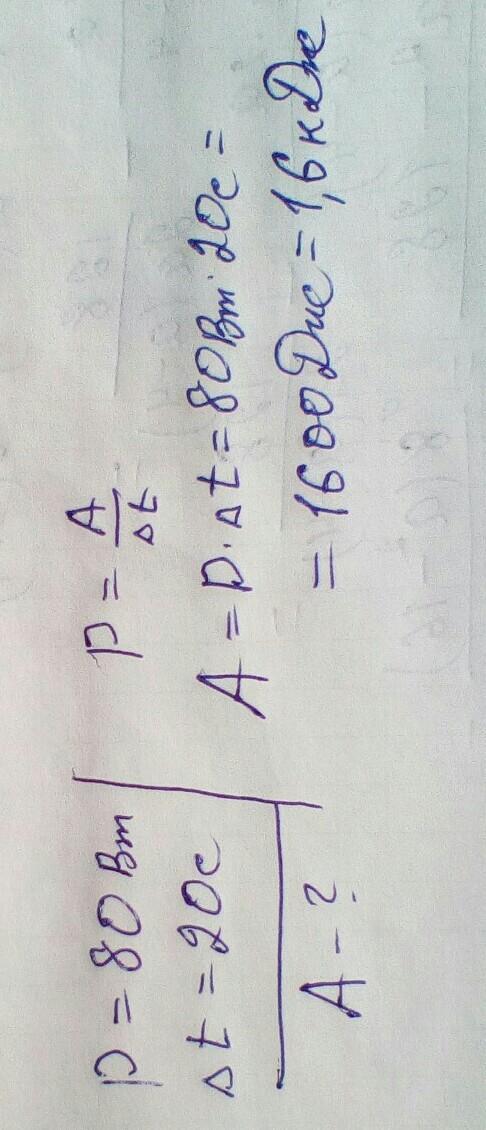 P = 80 Вт
Δt = 20с
A - ?
P = A/Δt
A = P · Δt = 80Вт · 20с =
= 1600Дж = 1,6кДж